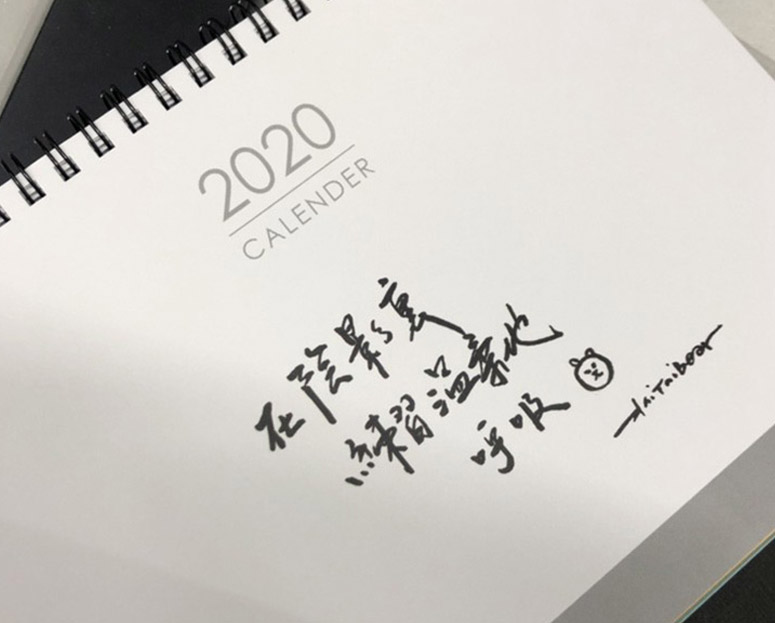 2020
CALENDER
在陰影裏
練習溫柔地
呼吸